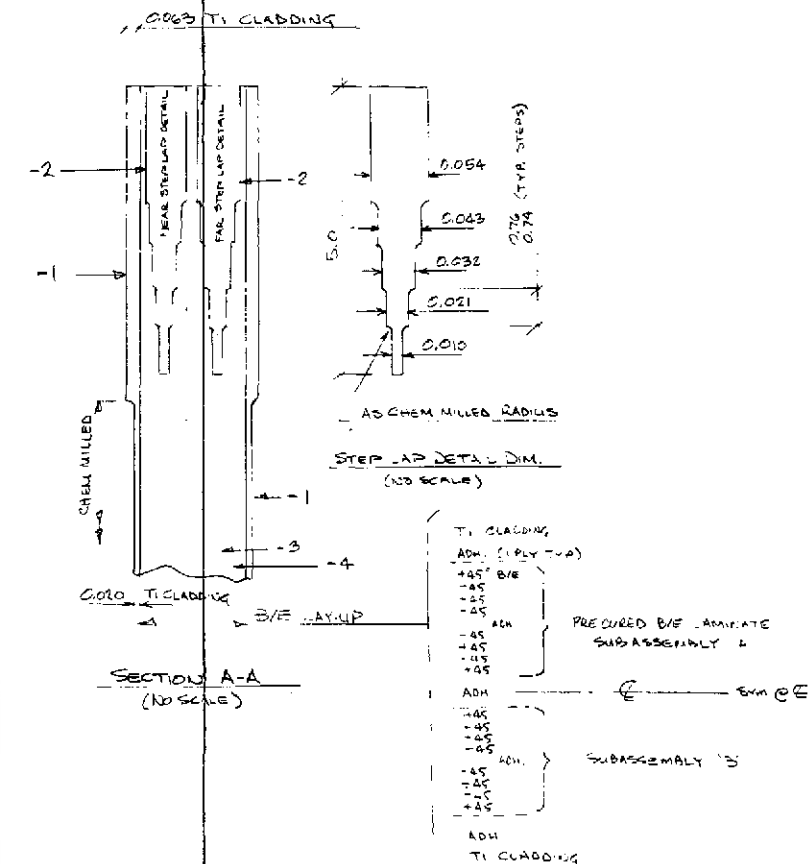 0.063 TI CLADDING
NEAR STEP LAP DETAIL
FAR STEP LAP DETAIL
-2
-2
-1
CHEM MILLED
-1
-3
-4
0.020 TI CLADDING
B/E LAY-UP
SECTION A-A
(NO SCALE)
5.0
0.054
0.043
0.032
0.021
0.010
0.76 (TYP. STEPS)
0.74
AS CHEM MILLED RADIUS
STEP LAP DETAIL DIM.
(NO SCALE)
TI CLADDING
ADH. (1 PLY TYP)
+45° B/E
-45
-45
-45
ADH
-45
+45
-45
+45
PRECURED B/E LAMINATE
SUBASSEMBLY
ADH
℄
SYM @ ℄
+45
-45
-45
ADH.
-45
-45
+45
SUBASSEMBLY 'B'
ADH
TI CLADDING